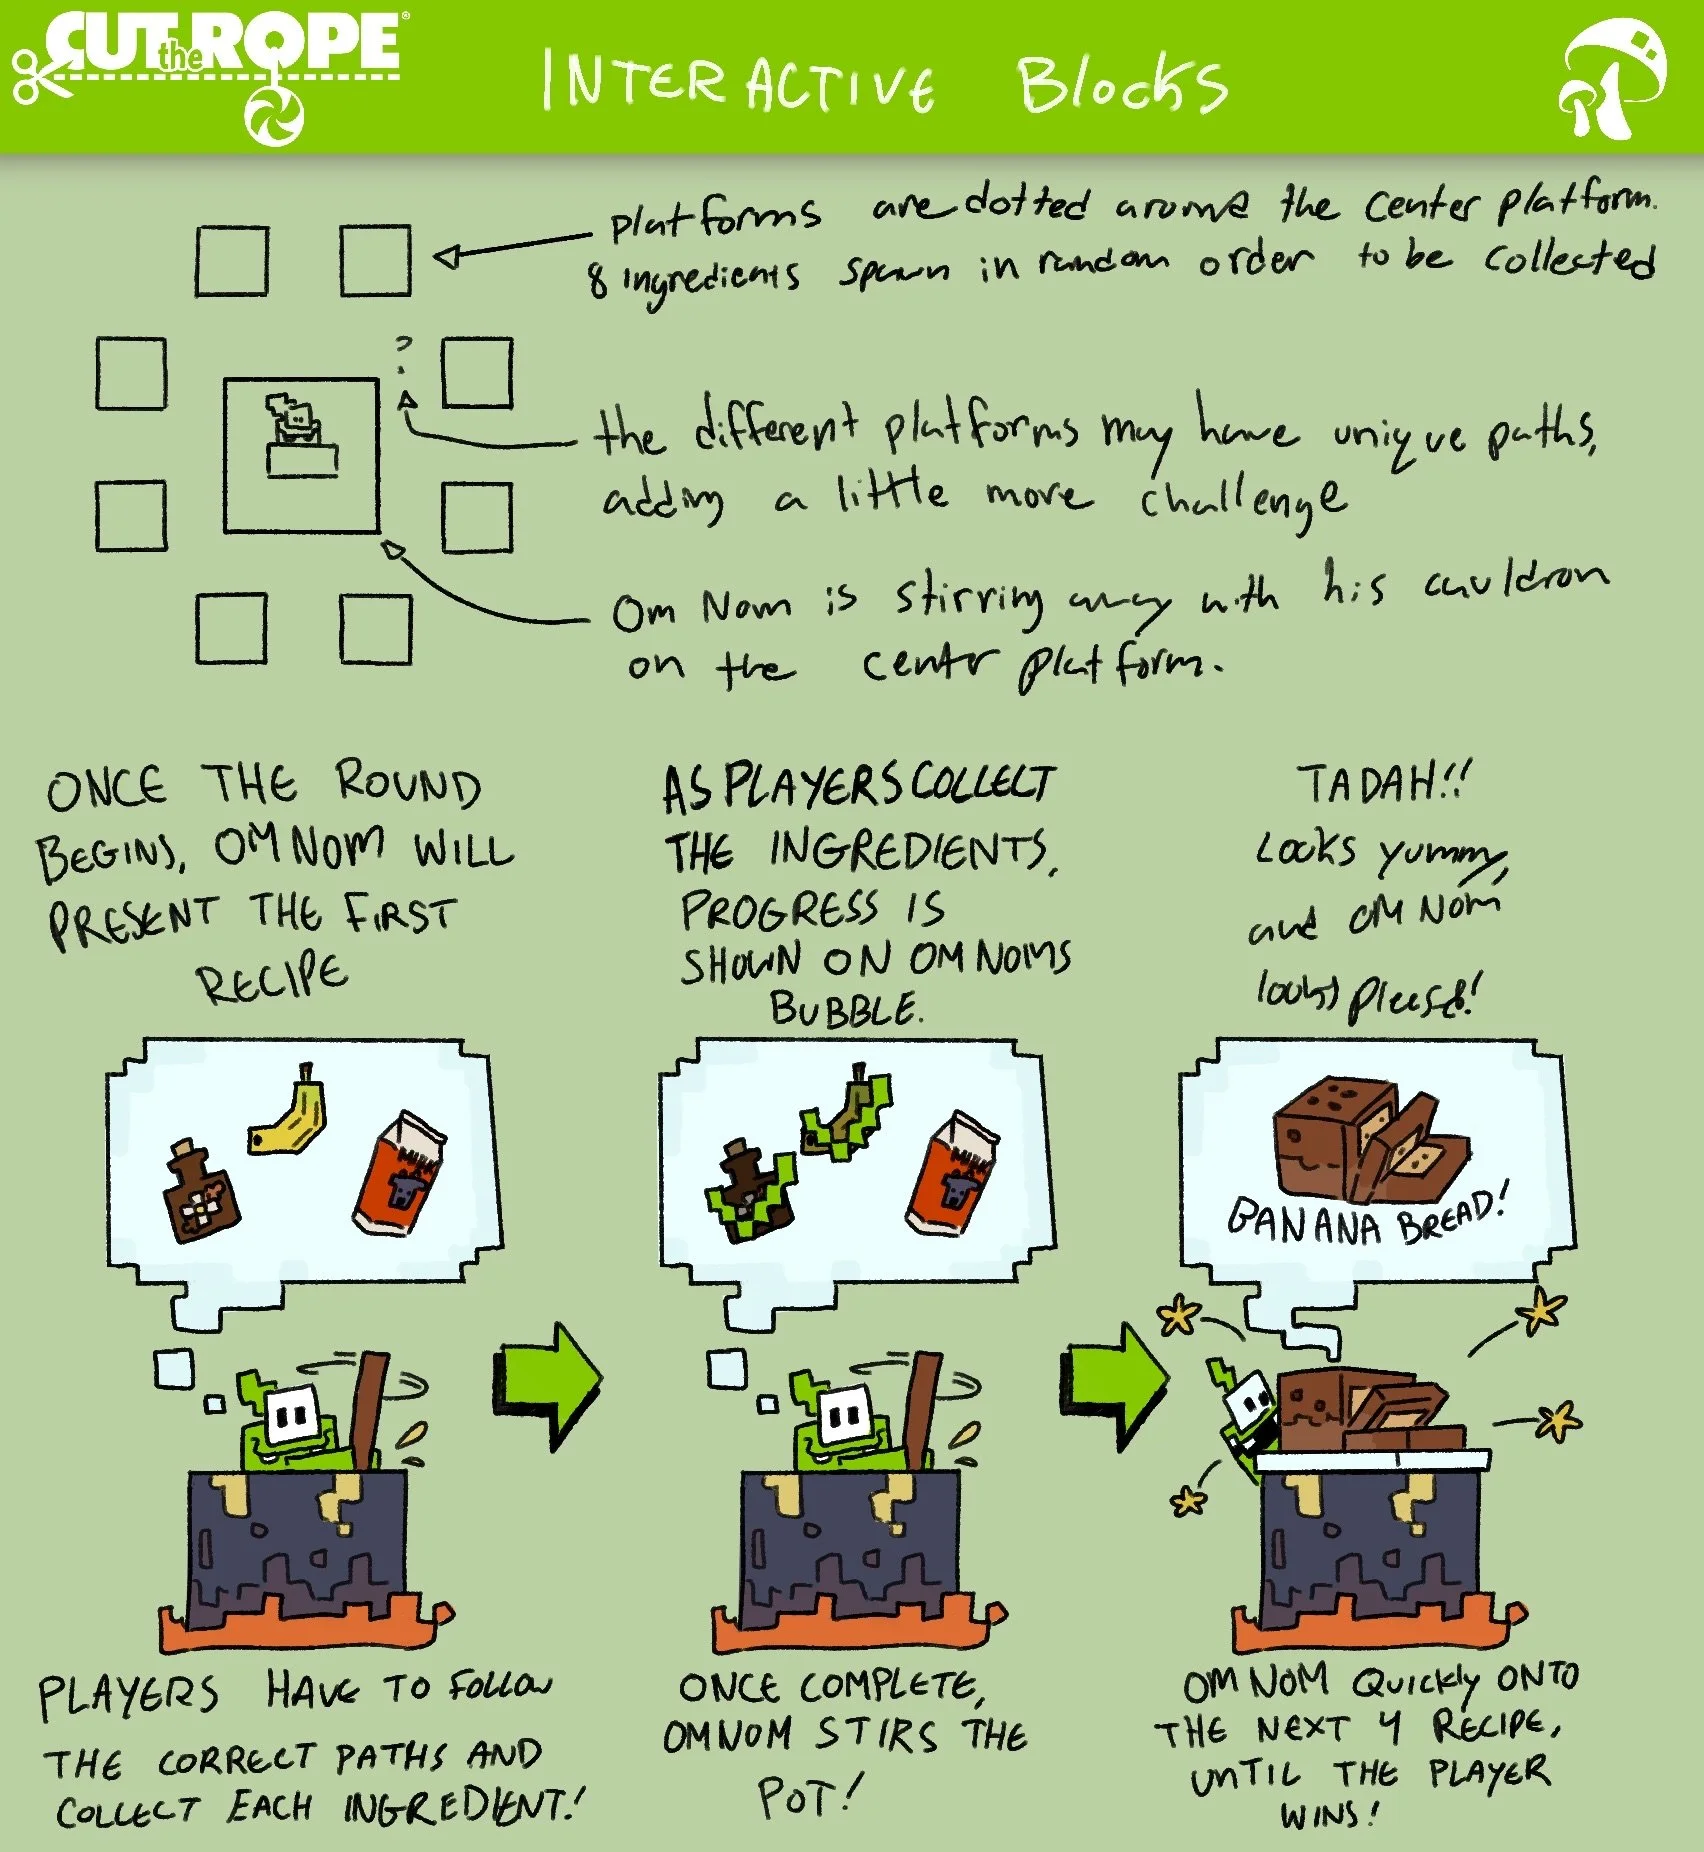 CUT the ROPE®
INTERACTIVE Blocks
platforms are dotted around the center platform.
8 ingredients spawn in random order to be collected
?
the different platforms may have unique paths,
adding a little more challenge
Om Nom is stirring away with his cauldron
on the center platform.
ONCE THE ROUND
BEGINS, OM NOM WILL
PRESENT THE FIRST
RECIPE
AS PLAYERS COLLECT
THE INGREDIENTS,
PROGRESS IS
SHOWN ON OM NOMS
BUBBLE.
TADAH!!
Looks yummy,
and OM NOM
looks pleased!
MILK
MILK
BANANA BREAD!
PLAYERS HAVE TO FOLLOW
THE CORRECT PATHS AND
COLLECT EACH INGREDIENT!
ONCE COMPLETE,
OM NOM STIRS THE
POT!
OM NOM QUICKLY ONTO
THE NEXT 4 RECIPE,
UNTIL THE PLAYER
WINS!